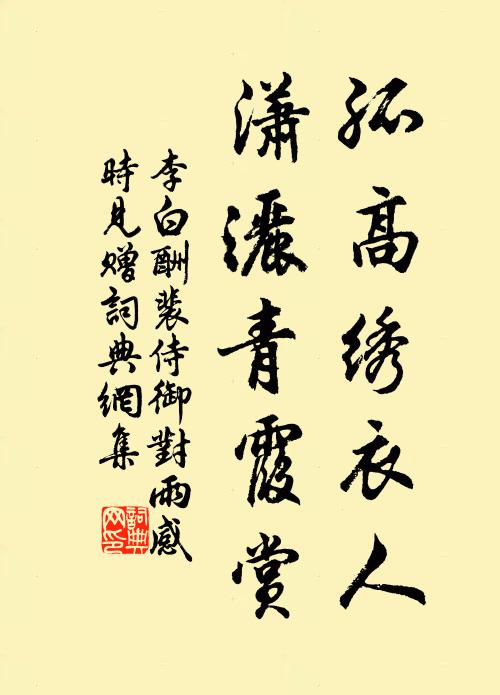 孤高绣衣人
瀟灑青霞賞
李白酬裴侍御對雨感
時見贈詞典網集
詞典
网印